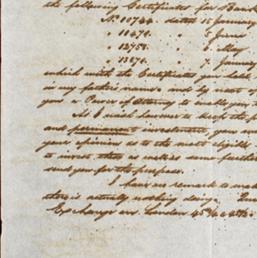 the following Certificates for Bank
No 10744. dated 15 January
" 11470. " 5 June
" 12751. " 6 May
" 13576. " 7. January
which with the Certificates you hold
in my father's name. and by next
you a Power of Attorney to enable you
As I wish however to keep the
and permanent investments, you
your opinion as to the most eligible
to invest them as well as some further
send you for the purpose.
I have no remark to make
there is actually nothing doing.
Exchange on London